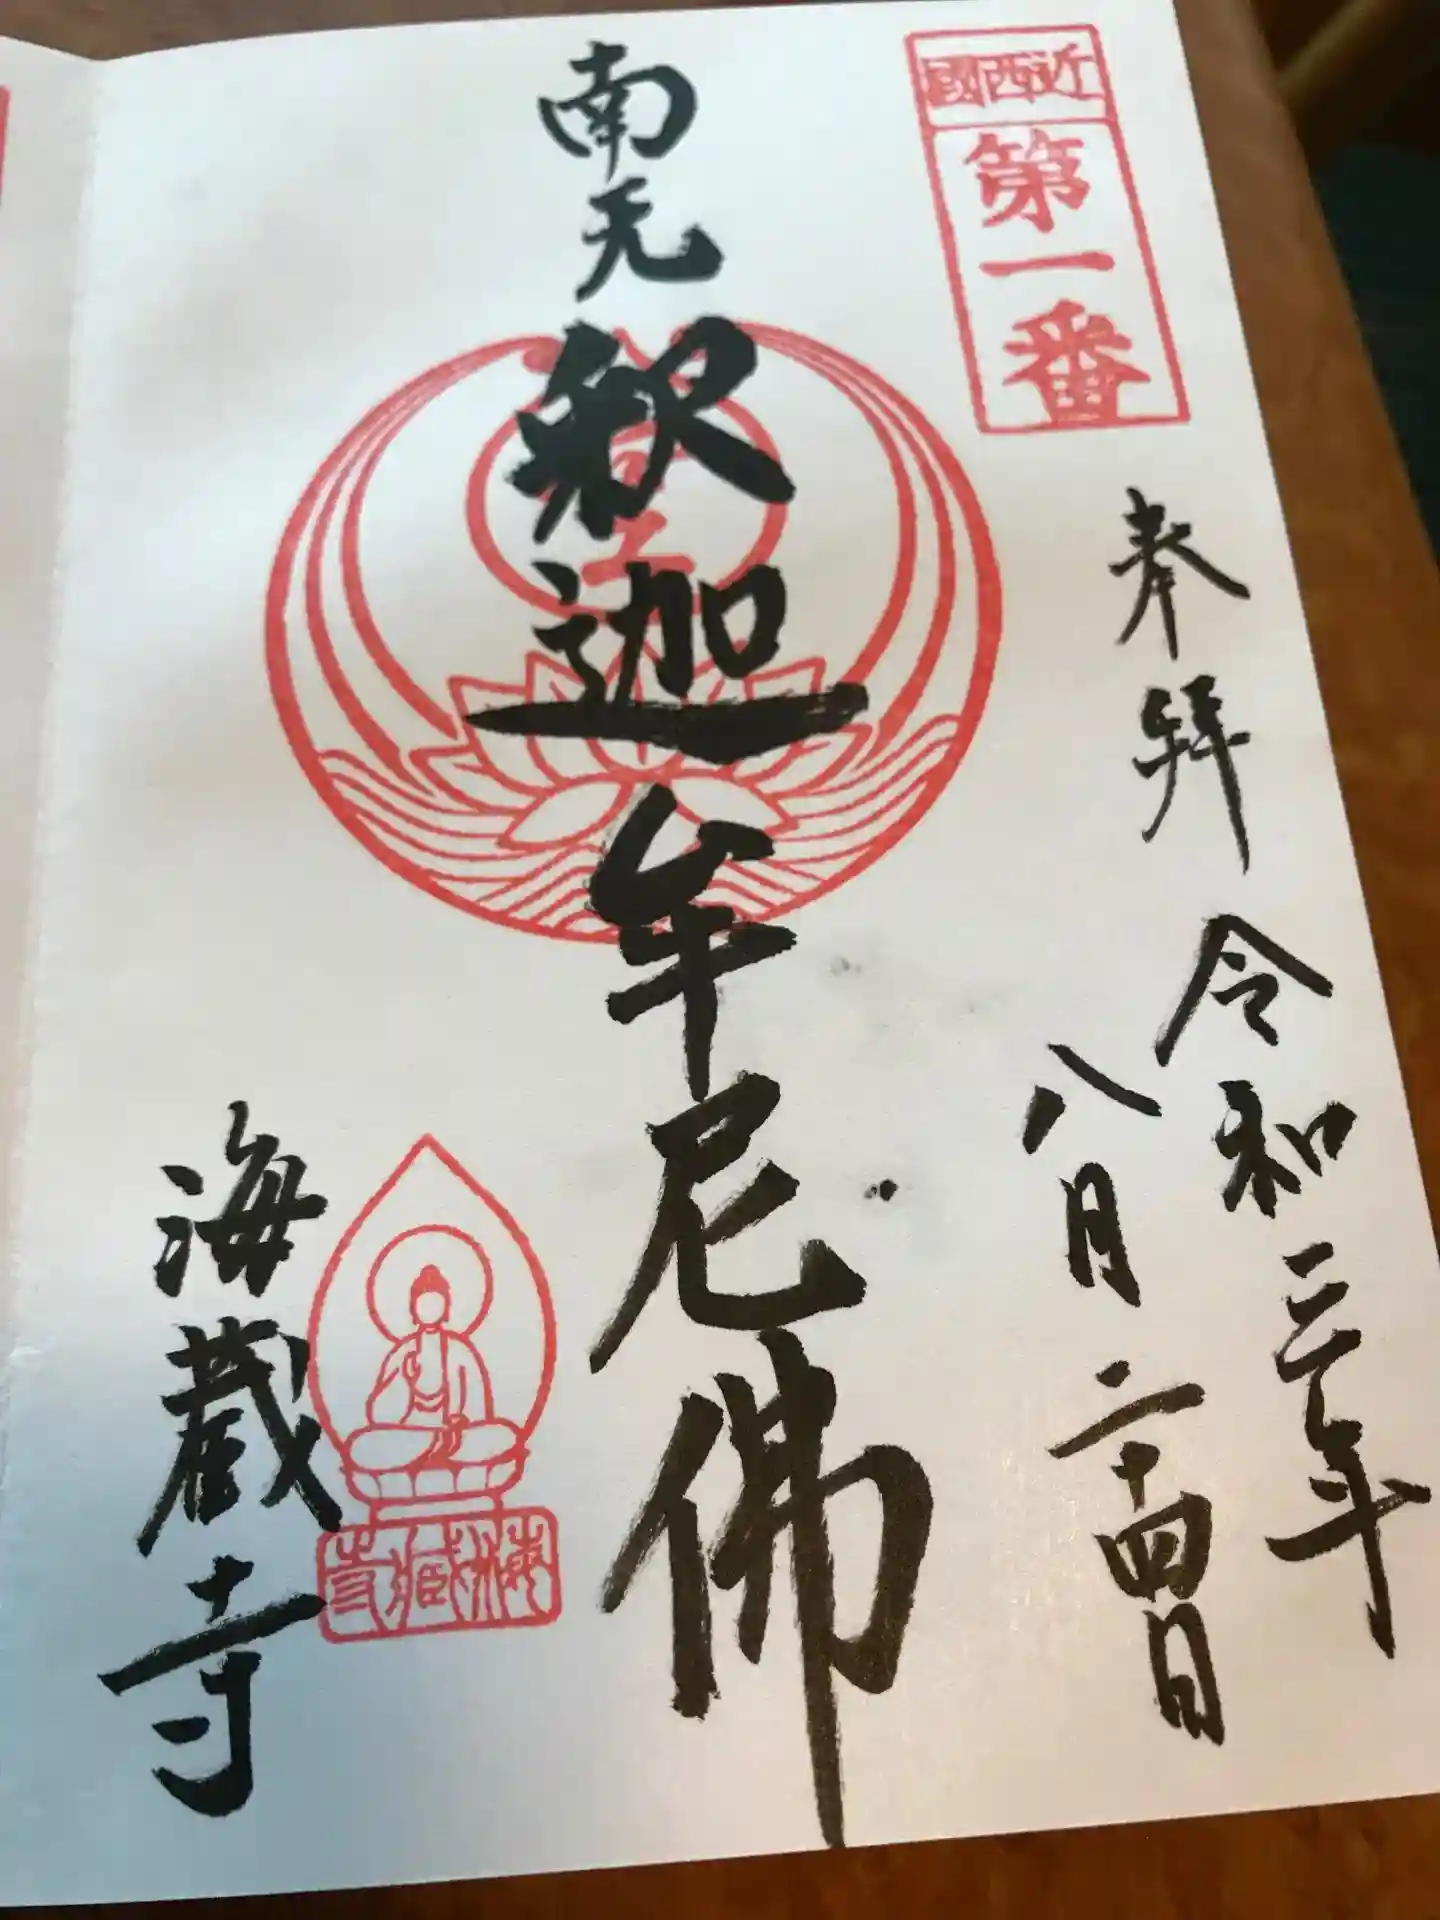 近西國
第一番
奉拝
令和三年
八月二十四日
南无釈迦牟尼佛
海蔵寺
海藏寺